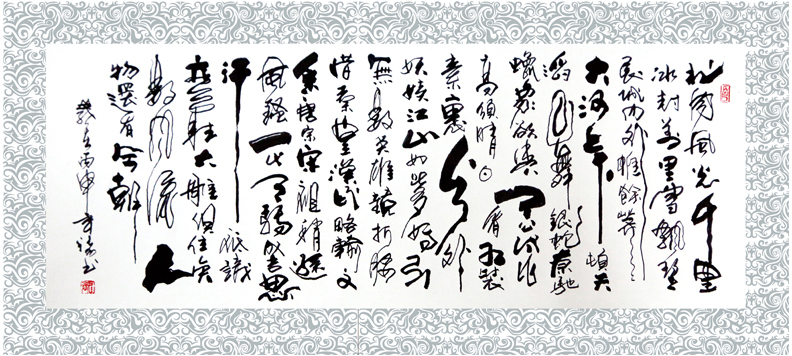 北国風光千里
冰封萬里雪飄望
長城内外惟餘莽莽
大河上下頓失
滔滔山舞銀蛇原馳
蠟象欲與天公試比
高須晴日看红装
素裹分外
妖嬈江山如此多娇引
無數英雄競折腰
惜秦皇漢武略輸文
采唐宗宋祖稍遜
風騷一代天驕成吉思
汗祇識
彎弓射大雕俱往矣
數風流人
物還看今朝
歲在丙申